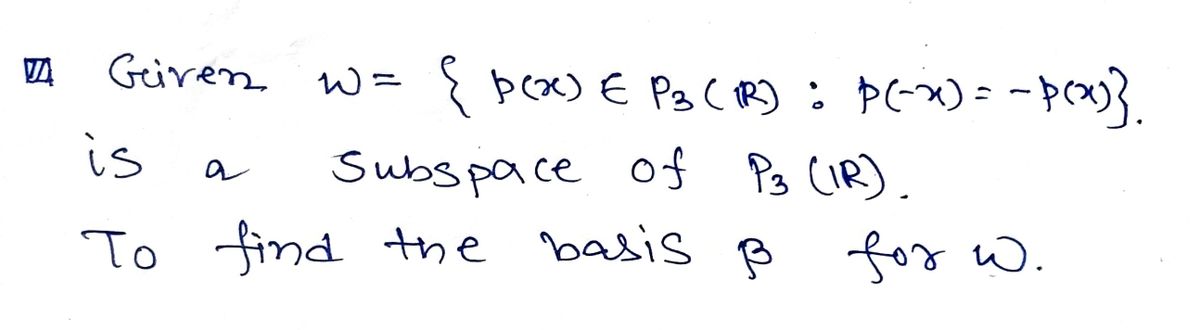 Given W = { p(x) ∈ P₃(ℝ) : p(-x) = -p(x)}.
is a subspace of P₃(ℝ).
To find the basis β for W.